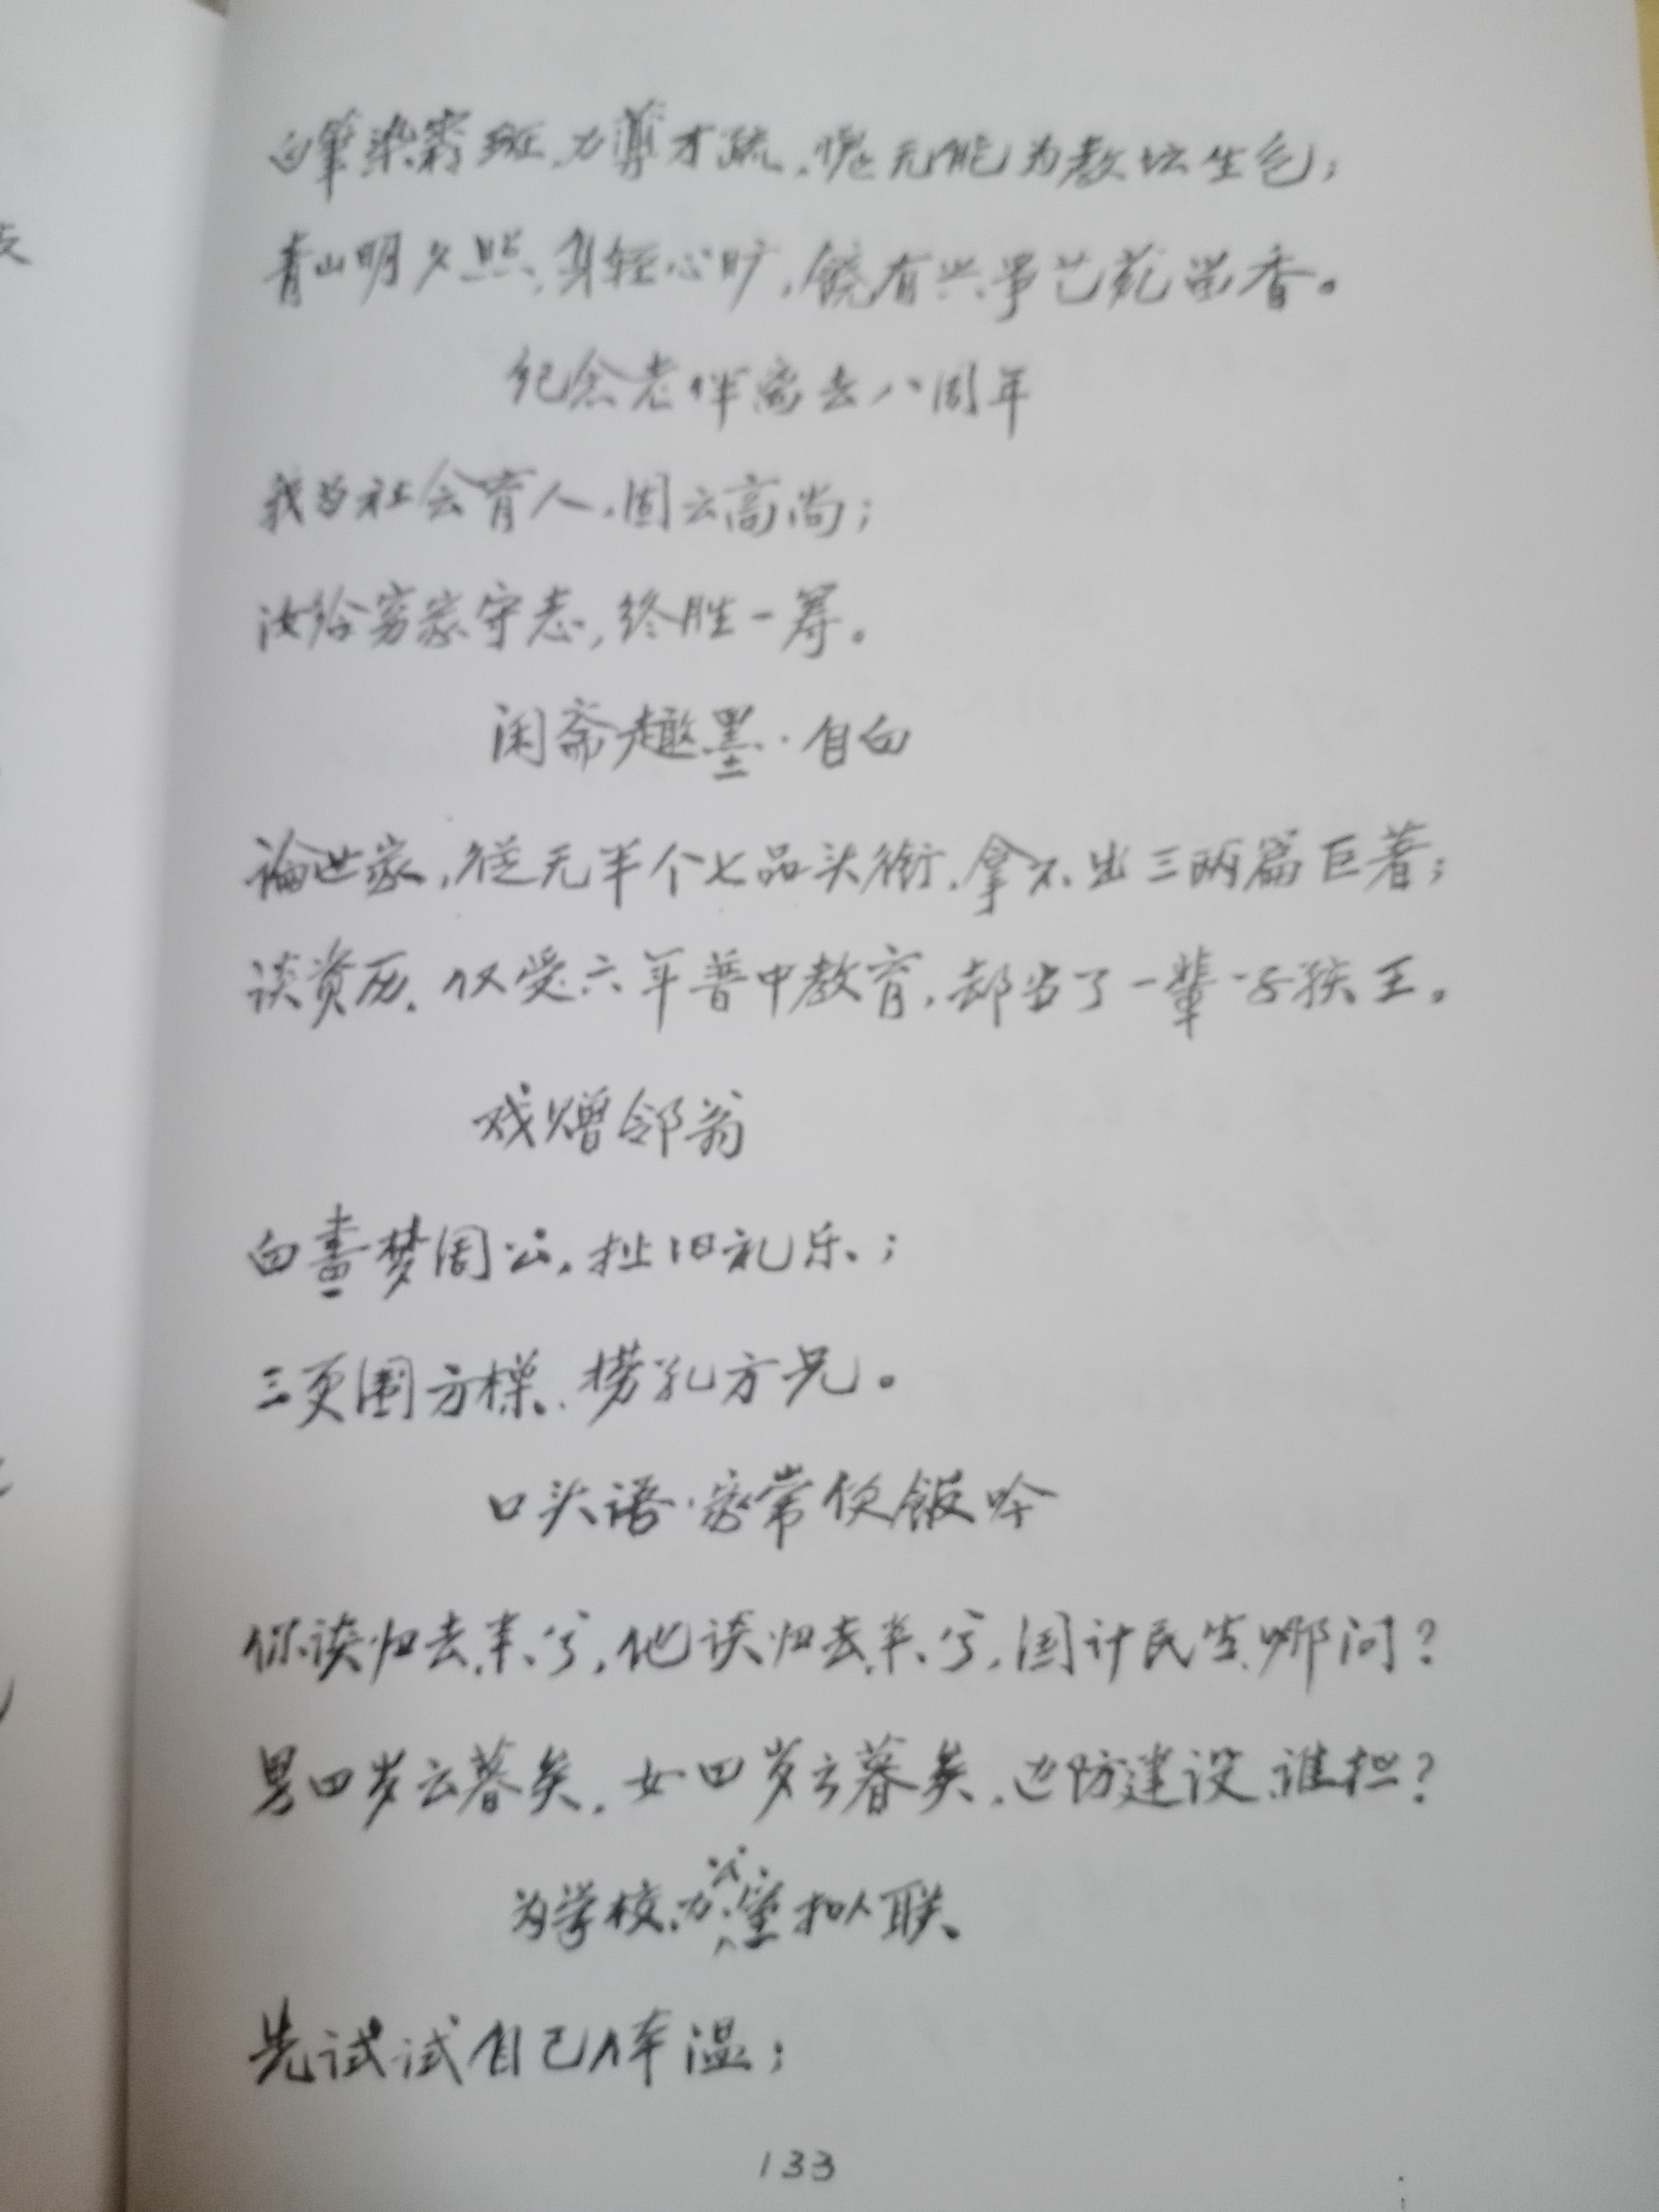 白笔染霜斑,力薄才疏,愧无能为教坛生色;
青山明夕照,身轻心旷,饶有兴事艺苑
香。
纪念老伴离去八周年
我为社会育人,固云高尚;
汝给穷家守志,终胜一筹。
闲斋趣墨·自白
論世家,从无半个七品头衔,拿不出三两篇巨著;
谈资历,仅受六年普中教育,却当了一辈子孩王。
戏赠邻翁
白晝梦周公,扯旧礼乐;
三更围方桌,捞孔方兄。
口头语·家常便飯吟
你读归去来兮,他读归去来兮,国计民生哪问?
男四岁云暮矣,女四岁云暮矣,边防建设谁担?
为学校办公室拟联
先试试自己体温;
133